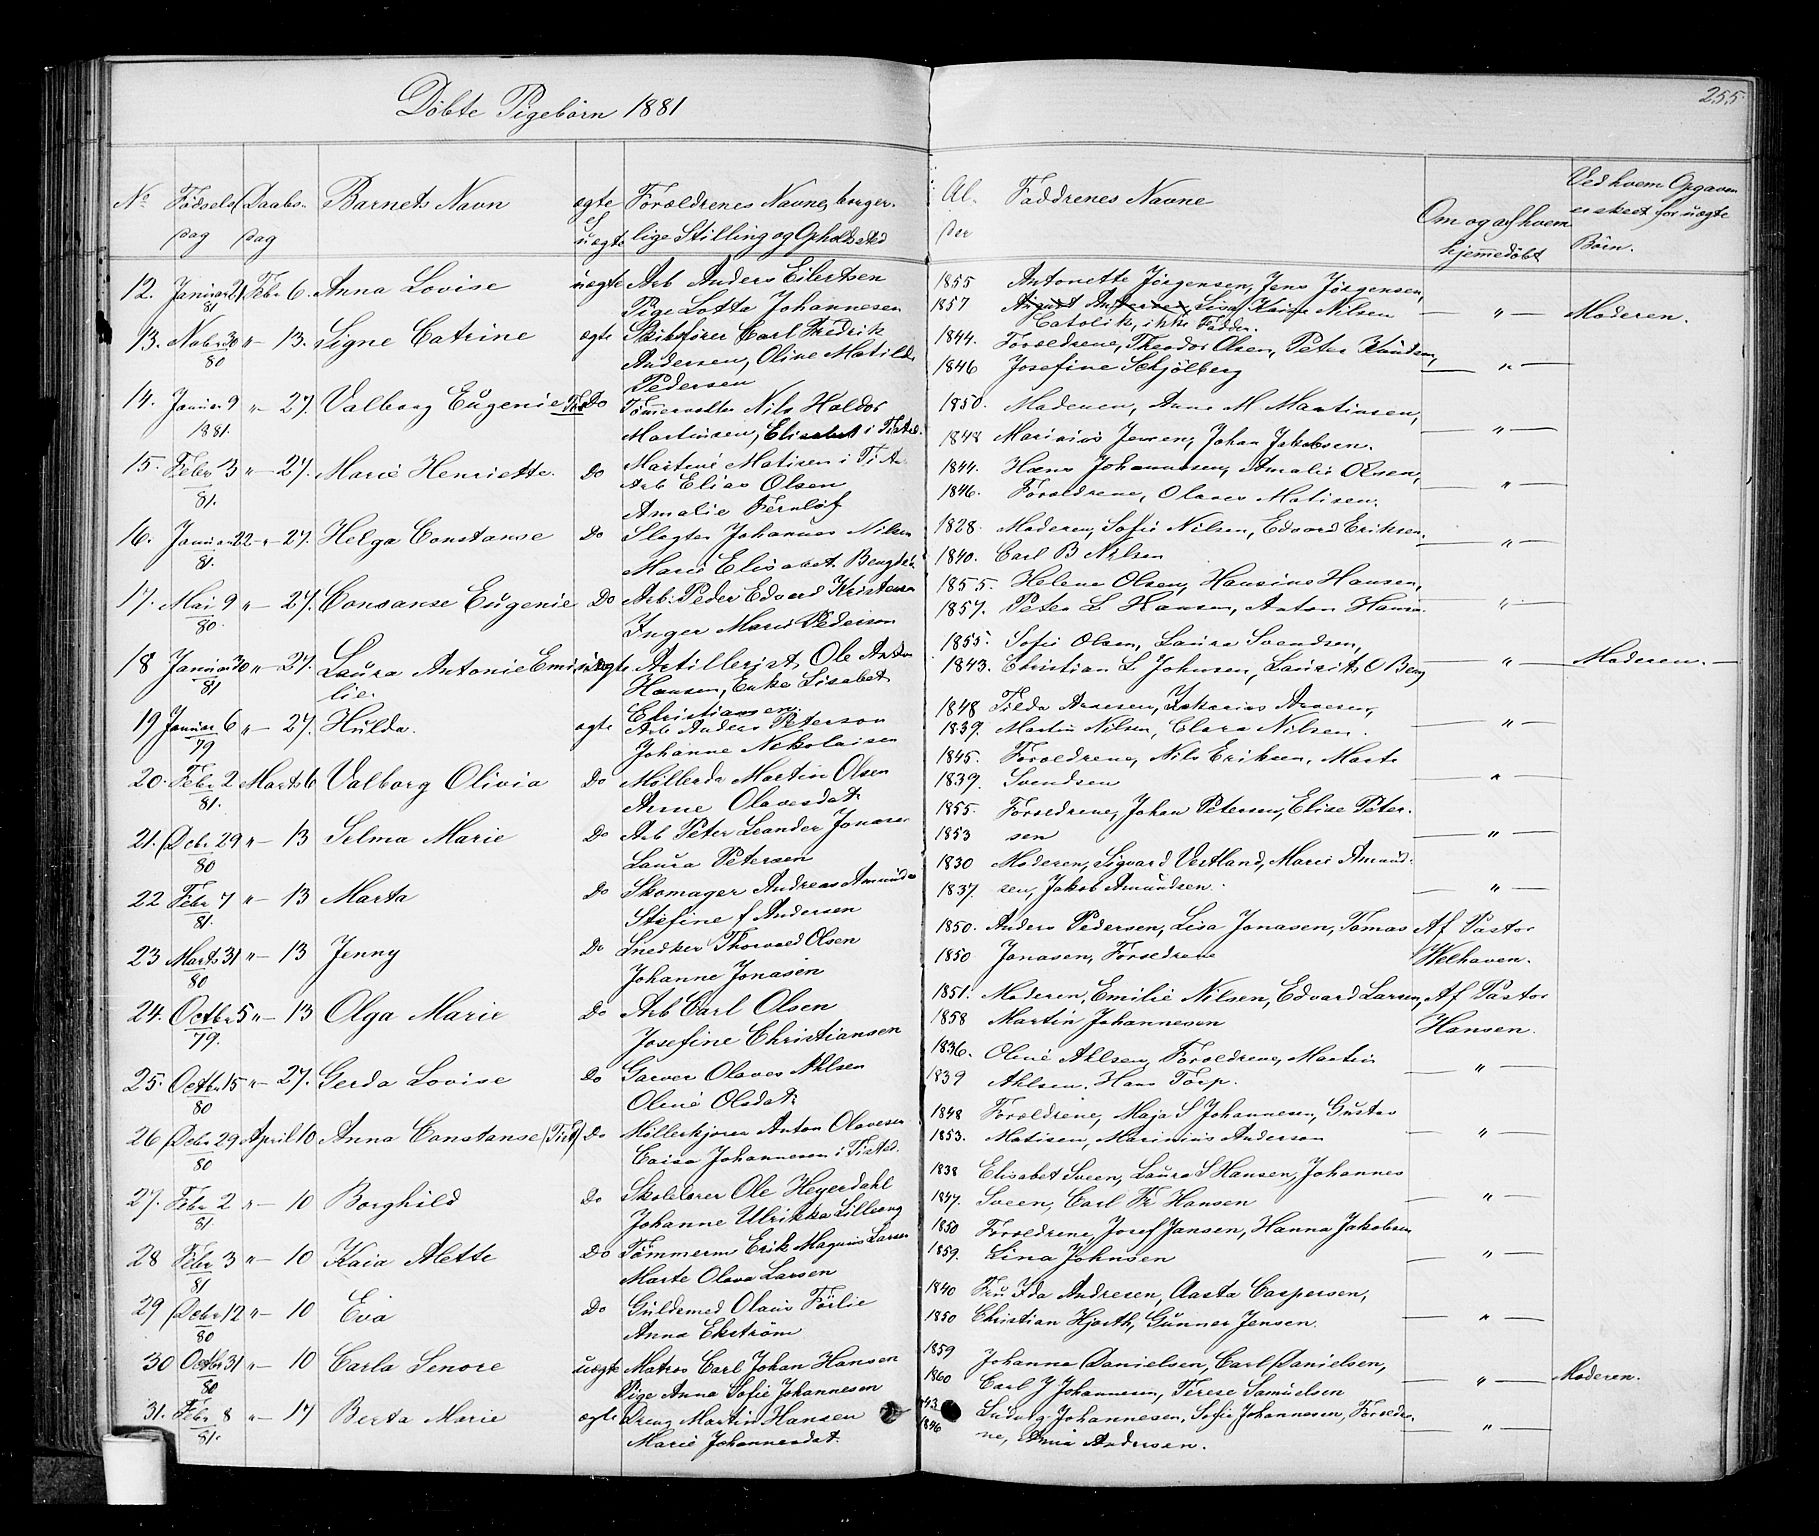 255.
Döbte Pigebörn 1881
No Födsels dag Daabs dag Barnets Navn ægte el uægte Foreldrenes Navne, borgerlige Stilling og Opholdssted Al- der Faddrenes Navne Om og af hvem hjemmedöbt Ved hvem Opgaven er skeet for uægte Börn.
12. Januar 21/81 Febr 6. Anna Lovise uægte Arb Anders Eilertsen 1855 Antonette Jörgensen, Jens Jörgensen,
Pige Lotta Johannesen 1857 Lisa Karine Nilsen — " — Moderen.
Catolik, ikke Fadder.
13. Nobr 30/80 " — 13. Signe Catrine ægte Skibsförer Carl Fredrik 1844. Foreldrene, Theodor Olsen, Peter Knudsen,
Andersen, Oline Matilde 1846 Josefine Schjölberg — " —
Pedersen
14. Januar 9/1881. " — 27. Valborg Eugenie Do Nils Haldor 1850. Moderen, Anne M. Martinsen,
Martinsen, Elisabet i Tistedl. 1848 Marinius Jensen, Johan Jakobsen. — " —
15. Febr 3/81. " — 27. Marie Henriette. Do Martine Matisen i Ti 1844. Hans Johannesen, Amalie Olsen,
Arb Elias Olsen 1846. Foreldrene, Olaves Matisen. — " —
Amalie Fernlöf
16. Januar 22/81. " — 27. Helga Constanse Do Slagter Johannes Nilsen 1828. Moderen, Sofie Nilsen, Edvard Eriksen.
Marie Elisabet Bengtdt. 1840. Carl B Nilsen — " —
17. Mai 9/80. " — 27. Consanse Eugenie Do Arb. Peder Edvard Kristensen 1855. Helene Olsen, Hansine Hansen,
Inger Marie Pederson 1857. Peter L Hansen, Anton Hansen — " —
18 Januar 30/81 " — 27. Laura Antonie Emi- uægte Artillerist, Ole Anton 1855. Sofie Olsen, Laura Svendsen,
lie. Hansen, Enke Lisabet 1843. Christian L Johnsen, Laurits O Berg — " — Moderen. —
Christiansen.
19 Januar 6/79 " — 27. Hulda. ægte Arb Anders Peterson 1848 Tilda Arnesen, Zakarias Arnesen,
Johanne Nikolaisen 1839. Martin Nilsen, Clara Nilsen. — " —
20. Febr 2/81. Marts 6 Valborg Olivia Do Möllerdr Martin Olsen 1845. Foreldrene, Nils Eriksen, Marte
Anne Olavesdat. 1839. Svendsen — " —
21. Debr 29/80 " — 13 Selma Marie Do Arb Peter Leander Jonasen 1855. Foreldrene, Johan Petersen, Elise Peter-
Laura Petersen 1853 sen — " —
22 Febr 7/81. " — 13 Marta Do Skomager Andreas Amunds 1830 Moderen, Sigvard Vestland, Marie Amund-
Stefine f Andersen 1837. sen, Jakob Amundsen. — " —
23 Marts 31/80 " — 13 Jenny Do Snedker Thorvald Olsen 1850. Anders Pedersen, Lisa Jonasen, Tomas Af Pastor
Johanne Jonasen 1850 Jonasen, Foreldrene Welhaven.
24. Octbr 5/79. " — 13 Olga Marie Do Arb Carl Olsen 1851. Moderen, Emilie Nilsen, Edvard Larsen, Af Pastor
Josefine Christiansen 1858 Martin Johannesen Hansen.
25. Octbr 15/80 " — 27. Gerda Lovise Do Garver Olaves Ahlsen 1836. Oline Ahlsen, Foreldrene, Martin
Oline Olsdat. 1839 Ahlsen. Hans Torp. — " —
26 Debr 29/80 April 10 Anna Constanse (Tist) Do Möllerkjörer Anton Olavesen 1848 Foreldrene, Maja S Johannesen, Gustav
Caisa Johannesen i Tisted. 1853. Matisen, Marinius Anderson — " —
27. Febr 2/81 " — 10 Borghild Do Skolelærer Ole Heyerdahl 1838 Elisabet Sveen, Laura S Hansen, Johannes
Johanne Ulrikka Lilleeng 1847. Sveen, Carl Fr Hansen — " —
28 Febr 3/81 " — 10 Kaia Alette Do Tömmerm Erik Magnus Larsen 1850 Foreldrene, Josef Jansen, Hanna Jakobsen
Marte Olava Larsen 1859. Lina Johnsen — " —
29 Debr 12/80 " — 10 Eva Do Guldsmed Olaus Förlie 1840 Fru Ida Andresen, Aasta Caspersen,
Anna Ekström 1850 Christian Hjorth, Gunner Jensen. — " —
30 Octbr 31/80 " — 10 Carla Lenore uægte Matros Carl Johan Hansen 1859 Johanna Danielsen, Carl Danielsen,
Pige Anna Sofie Johannesen 1860 Carl J Johannesen, Terese Samuelsen — " — Moderen.
31. Febr 8/81. " — 17 Berta Marie ægte Dreng Martin Hansen 43. Ludvig Johannesen, Sofie Johannesen, Foreldre-
Marie Johannesdat. 1846 ne, Anna Andersen. — " —